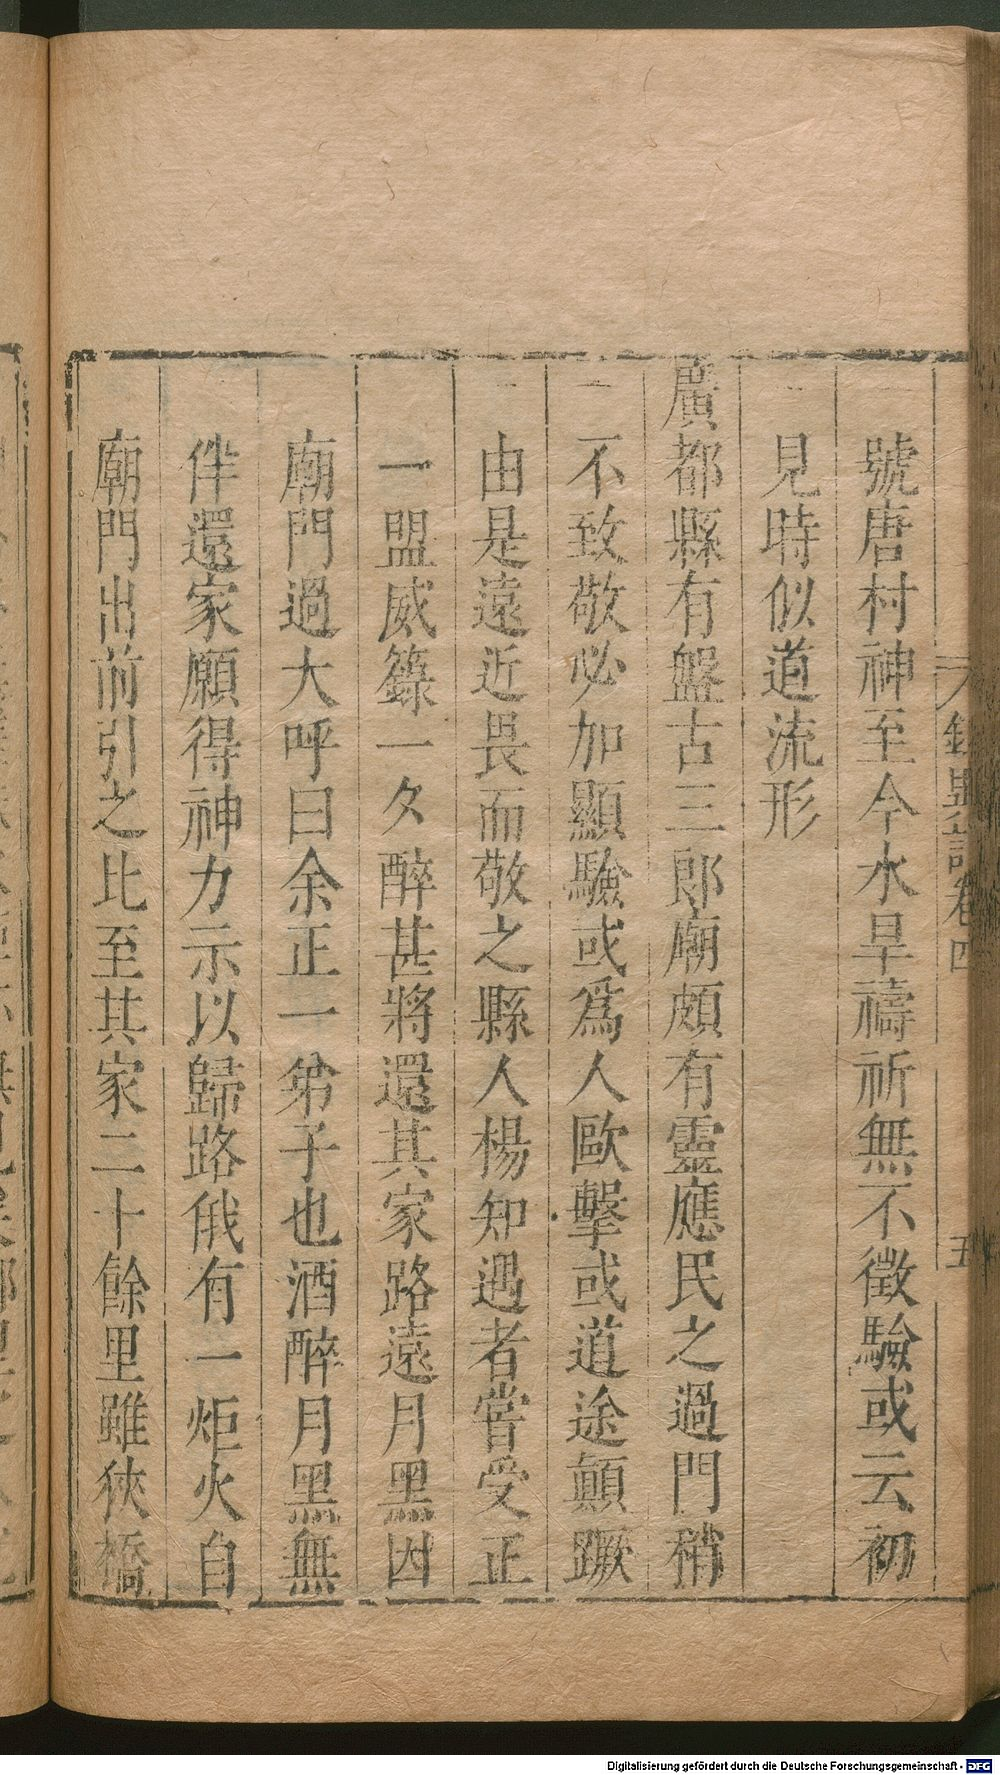 號唐村神至今水旱禱祈無不徵驗或云初
見時似道流形
廣都縣有盤古三郎廟頗有靈應民之過門稍
不致敬必加顯驗或爲人歐擊或道途顛蹶
由是遠近畏而敬之縣人楊知遇者嘗受正
一盟威籙一夕醉甚將還其家路遠月黑因
廟門過大呼曰余正一弟子也酒醉月黑無
伴還家願得神力示以歸路俄有一炬火自
廟門出前引之比至其家二十餘里雖狹橋
錄異記卷四
五
Digitalisierung gefördert durch die Deutsche Forschungsgemeinschaft - DFG